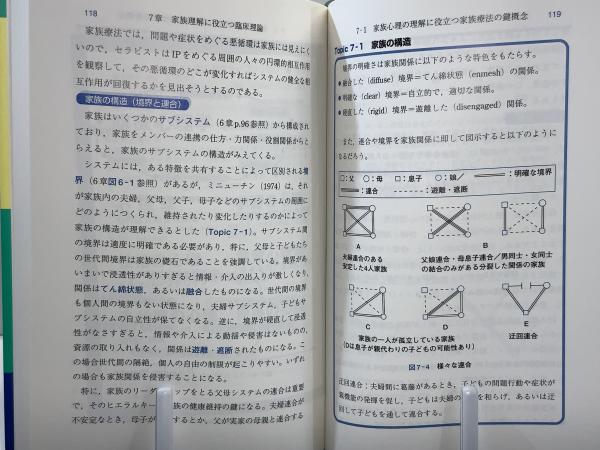 118
7章 家族理解に役立つ臨床理論
家族療法では，問題や症状をめぐる悪循環は家族には見えにく
いので，セラピストはIPをめぐる周囲の人々の円環的相互作用
を観察して，その悪循環のどこが変化すればシステムの健全な相
互作用が回復するかを見出そうとするのである。
家族の構造（境界と連合）
家族はいくつかのサブシステム（6章p.96参照）から構成され
ており，家族をメンバーの連携の仕方・力関係・役割関係からと
らえると，家族のサブシステムの構造がみえてくる。
システムには，ある特徴を共有することによって区別される境
界（6章図6-1参照）があるが，ミニューチン（1974）は，それ
が家族内の夫婦，父母，父子，母子などのサブシステムの周囲に
どのようにつくられ，維持されたり変化したりするのかによって
家族の構造が理解できるとした（Topic 7-1）。サブシステム間
の境界は適度に明確である必要があり，特に，父母と子どもたち
の世代間境界は家族の礎石であることを強調している。境界があ
いまいで浸透性がありすぎると情報・介入の出入りが激しくなり，
関係はてん綿状態，あるいは融合したものになる。世代間の境界
も個人間の境界もない状態になり，夫婦サブシステム，子どもサ
ブシステムの自立性が保てなくなる。逆に，境界が硬直して浸透
性がなさすぎると，情報や介入による動揺や侵害はないものの，
資源の取り入れもなく，関係は遊離・遮断されたものになる。こ
の場合世代間の隔絶，個人の自由の制限が起こりやすい。いずれ
の場合も家族関係を侵害することになる。
特に，家族のリーダーシップをとる父母システムの連合は重要
で，そのヒエラルキー 族の健康維持の鍵になる。夫婦連合が
不安定なとき，母子が するとか，父が実家の母親と連合する
7-1 家族心理の理解に役立つ家族療法の鍵概念
119
Topic 7-1 家族の構造
境界の明確さは家族関係に以下のような特色をもたらす。
◆融合した（diffuse）境界＝てん綿状態（enmesh）の関係。
◆明確な（clear）境界＝自立的で，適切な関係。
◆硬直した（rigid）境界＝遊離した（disengaged）関係。
また，連合や境界を家族関係に即して図示すると以下のように
なるだろう。
□：父 ○：母 □：息子 ○：娘／ ：明確な境界
：連合 ：遊離・遮断
A
夫婦連合のある
安定した4人家族
B
父娘連合・母息子連合／男同士・女同士
の結合のみがある分裂した関係の家族
C
D
家族の一人が孤立している家族
（Dは息子が親代わりの子どもの可能性あり）
E
迂回連合
図7-4 様々な連合
迂回連合：夫婦間に葛藤があるとき，子どもの問題行動や症状が
親機能の発揮を促し，子どもは夫婦の を和らげ，あるいは迂
回して子どもを通して連合する。